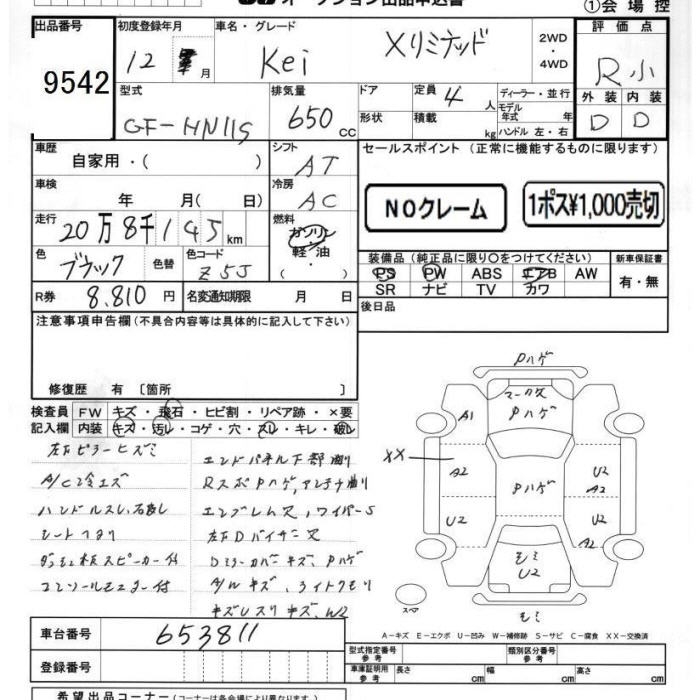 オークション出品申込書 ①会場控
出品番号 初度登録年月 車名・グレード 評価点
9542 12 年 月 Kei Xリミテッド 2WD・4WD R小
型式 排気量 ドア 定員 4 人 ディーラー・並行 外装 内装
GF-HN11S 650 cc 形状 積載 kg モデル年式 年 ハンドル 左・右 D D
車歴 自家用・( ) シフト AT セールスポイント (正常に機能するものに限ります)
車検 年 月( 日) 冷房 AC NOクレーム 1ポス¥1,000売切
走行 20万8千145km 燃料 ガソリン 軽・油 ( ・ )
色 ブラック 色替 色コード Z5J 装備品 (純正品に限り○をつけてください) 新車保証書
PS PW ABS エアB AW 有・無
SR ナビ TV カワ
R券 8,810円 名変通知期限 月 日 後日品
注意事項申告欄 (不具合内容等は具体的に記入して下さい)
修復歴 有 [箇所 ]
検査員 FW キズ・飛石・ヒビ割・リペア跡・×要
記入欄 内装 キズ・汚レ・コゲ・穴・スレ・キレ・破レ
左右ピラーヒズミ
A/C冷エズ
ハンドルスレ
シート
スピーカー付
付
エンドパネル下部
Rスポ Pハゲ、アンテナ
エンブレム欠、ワイパーS
左右Dバイザー欠
Dミラーカバーキズ、Pハゲ
A/Wキズ、ライトクモリ
W2
Pハゲ
マーク欠
Pハゲ
A1
XX
A2
Pハゲ
U2
A2
U2
A2
モミ
U2
スペア
モミ
A-キズ E-エクボ U-凹み W-補修跡 S-サビ C-腐食 XX-交換済
車台番号 653811
型式指定番号 参考 類別区分番号 参考
登録番号 車庫証明用 参考 長さ cm 幅 cm 高さ cm
希望出品コーナー (コーナーは各会場により異なります)